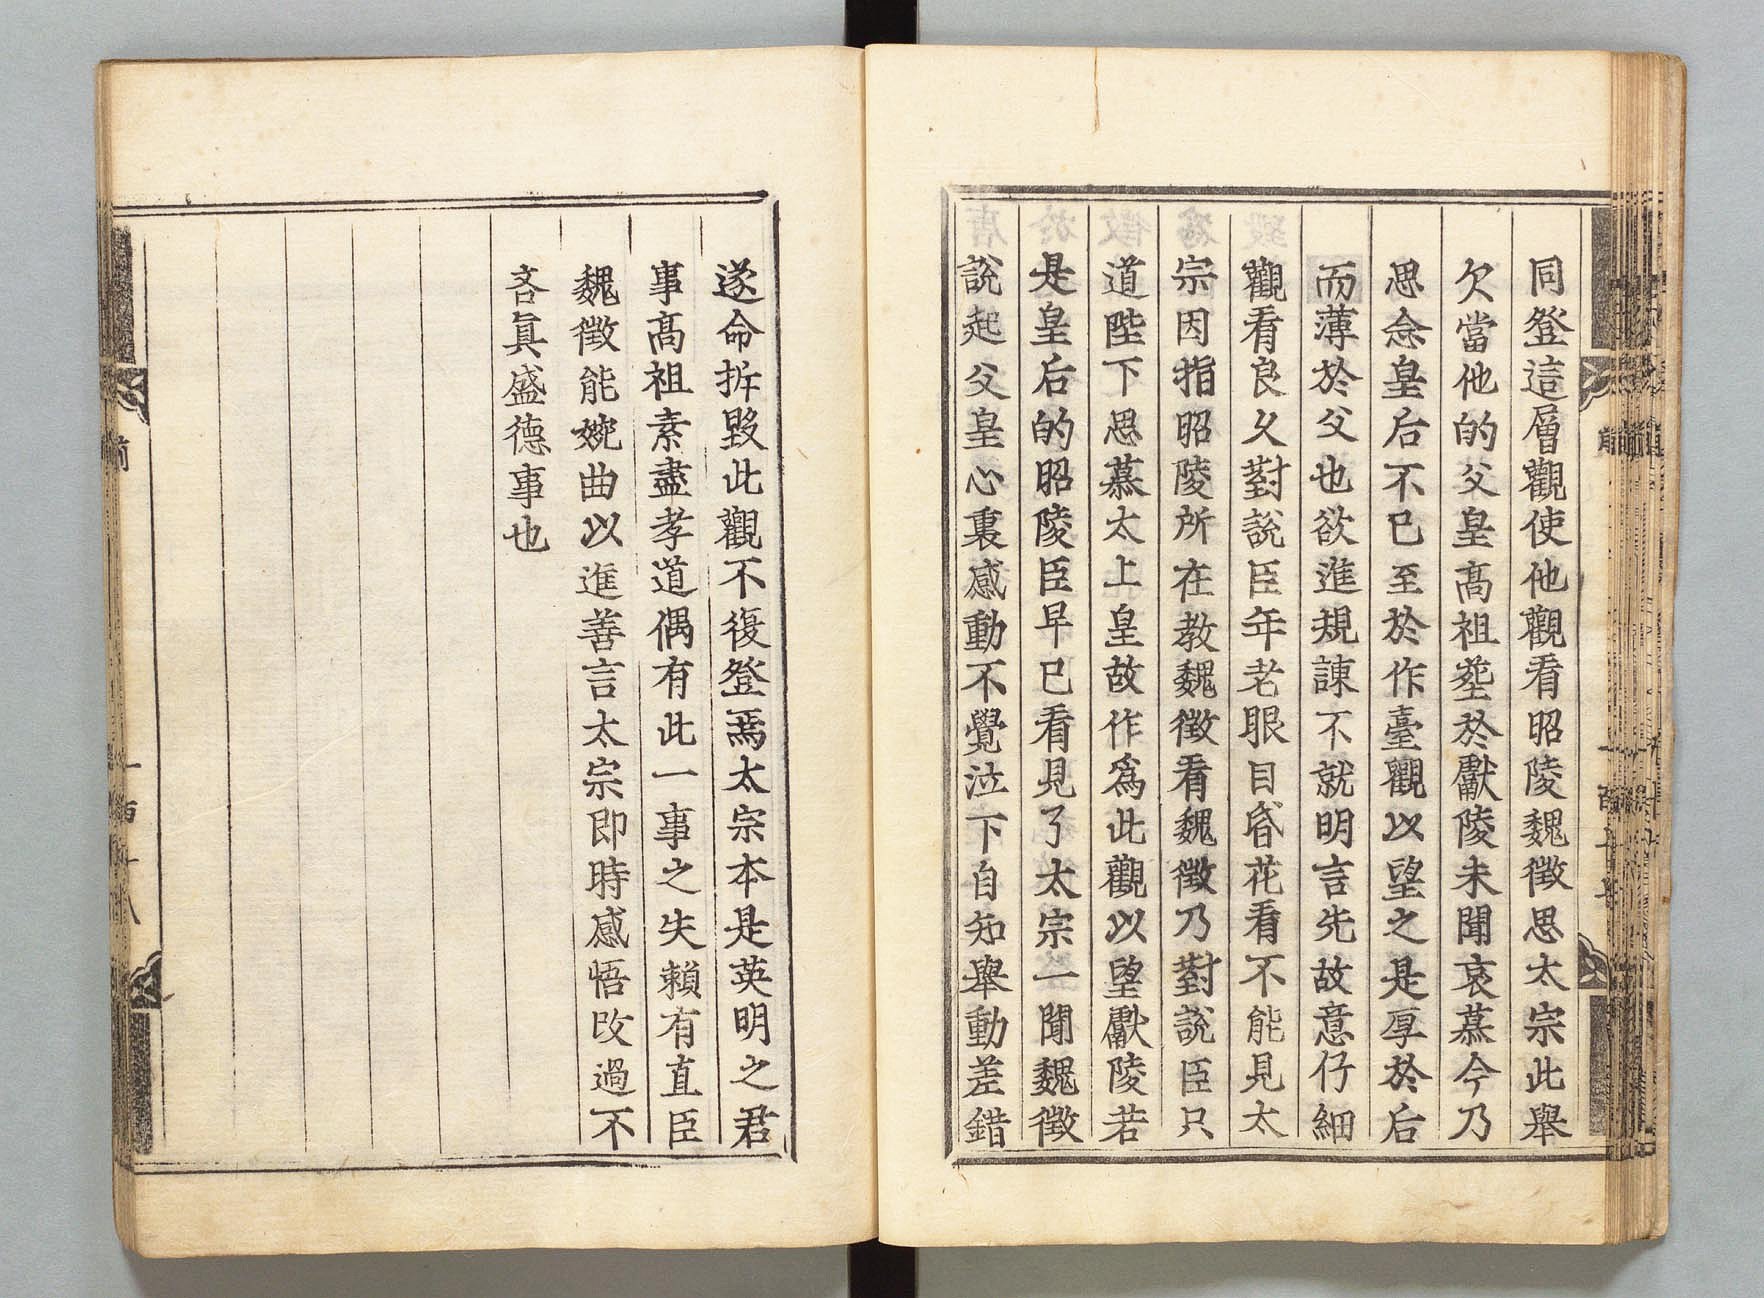 同登這層觀使他觀看昭陵魏徵思太宗此舉
欠當他的父皇高祖塟於獻陵未聞哀慕今乃
思念皇后不已至於作臺觀以望之是厚於后
而薄於父也欲進規諫不就明言先故意仔細
觀看良久對說臣年老眼目昏花看不能見太
宗因指昭陵所在教魏徵看魏徵乃對說臣只
道陛下思慕太上皇故作爲此觀以望獻陵若
是皇后的昭陵臣早已看見了太宗一聞魏徵
說起父皇心裏感動不覺泣下自知舉動差錯
遂命拆毀此觀不復登焉太宗本是英明之君
事高祖素盡孝道偶有此一事之失賴有直臣
魏徵能婉曲以進善言太宗即時感悟改過不
吝眞盛德事也